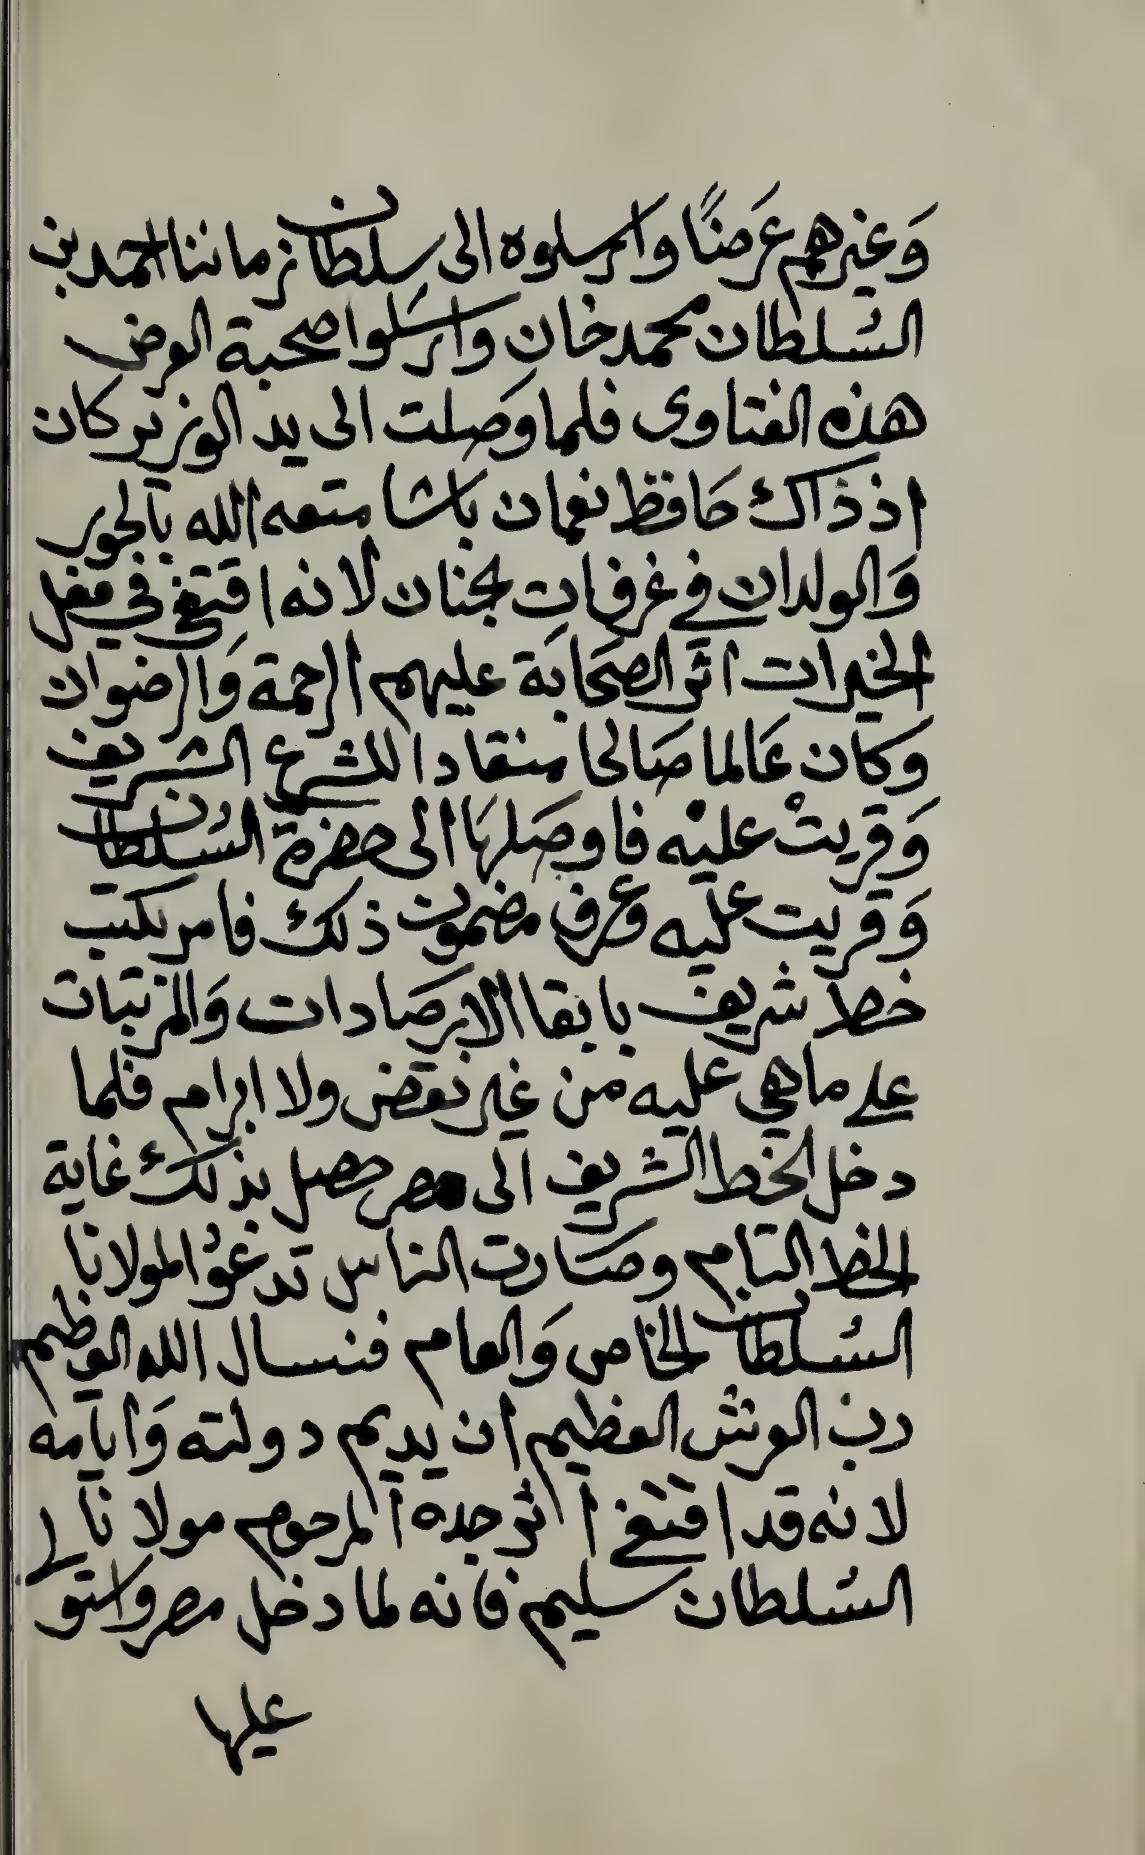 وَغيرهم عَرضًا وارسلوه الى سلطان زماننا احمد بن
السُلطان محمد خان وارسَلوا صحبة العرض
هذه الفتاوى فلما وصَلت الى يد الوزير كان
اذ ذاك حَافظ نعمان باشا متعه الله بالحور
وَالولدان في غرفات الجنان لانه اقتفى في فعل
الخيرات اثر الصحَابَة عليهم الرحمة وَالرضوان
وَكان عَالما صَالحا منقادا للشرع الشريف
وَقريتْ عليْه فاوصَلهَا الى حضرة السُلطان
وَقريت عليه وعرف مضمون ذلك فامر بكتب
خط شريف بابقا الارصَادات وَالمرتبات
على ما هي عليه من غير نقض ولا ابرام فلما
دخل الخط الشريف الى مصر حصل بذلك غاية
الحظ التام وصَارت الناس تدعُوا لمولانا
السُلطان الخاص وَالعام فنسال الله العظيم
رب العرش العظيم ان يديم دولته وَايامه
لانه قد اقتفى اثر جده المرحوم مولانا
السُلطان سليم فانه لما دخل مصر واستولى
عليها